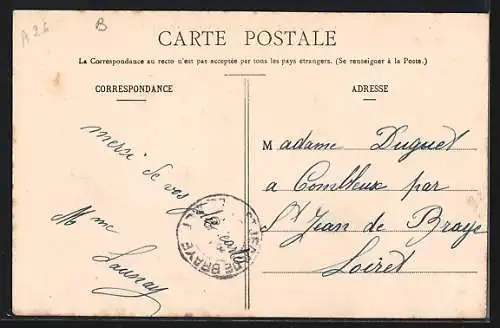 A26
B
CARTE POSTALE
La Correspondance au recto n'est pas acceptée par tous les pays étrangers. (Se renseigner à la Poste.)
CORRESPONDANCE
merci de vos
jolies cartes
Mme
Launay
ST JEAN DE BRAYE
ADRESSE
Madame Duguet
a Combleux par
St Jean de Braye
Loiret